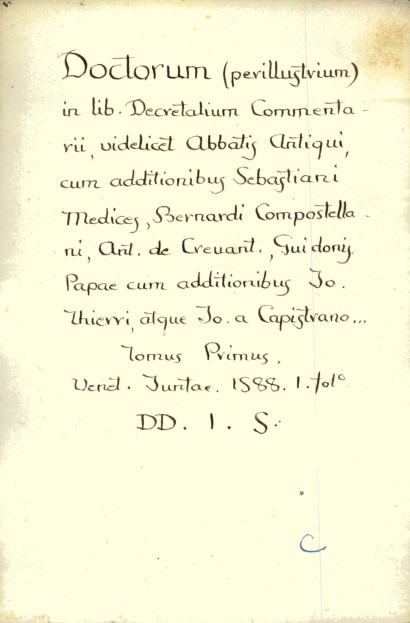 Doctorum (perillustrium)
in lib. Decretalium Commenta-
rii, videlicet Abbatis Antiqui,
cum additionibus Sebastiani
Medices, Bernardi Compostella-
ni, Ant. de Crevant., Guidonis
Papae cum additionibus Io.
Thierri, atque Io. a Capistrano...
Tomus Primus.
Venet. Iuntae. 1588. 1. fol.º
DD. I. S.
C